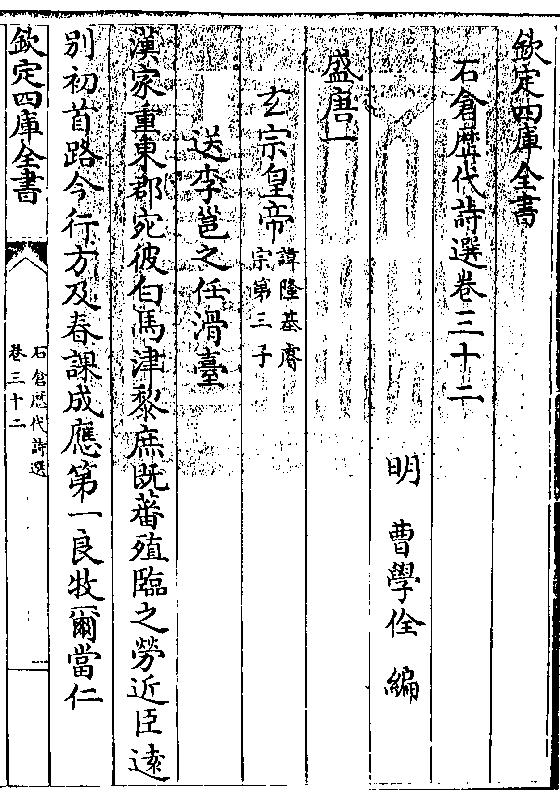 欽定四庫全書
石倉歴代詩選卷三十二
明 曹學佺 編
盛唐一
玄宗皇帝 諱隆基睿
宗第三子
送李邕之任滑臺
漢家重東郡宛彼白馬津黎庶既蕃殖臨之勞近臣逺
別初首路今行方及春課成應第一良牧爾當仁
欽定四庫全書
石倉歴代詩選
卷三十二